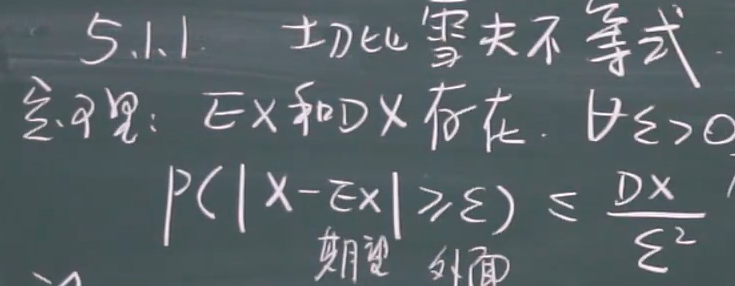 5.1.1. 切比雪夫不等式
定理: EX和DX存在. ∀ε>0
P(|X-EX|≥ε) ≤ DX/ε²
期望 外面